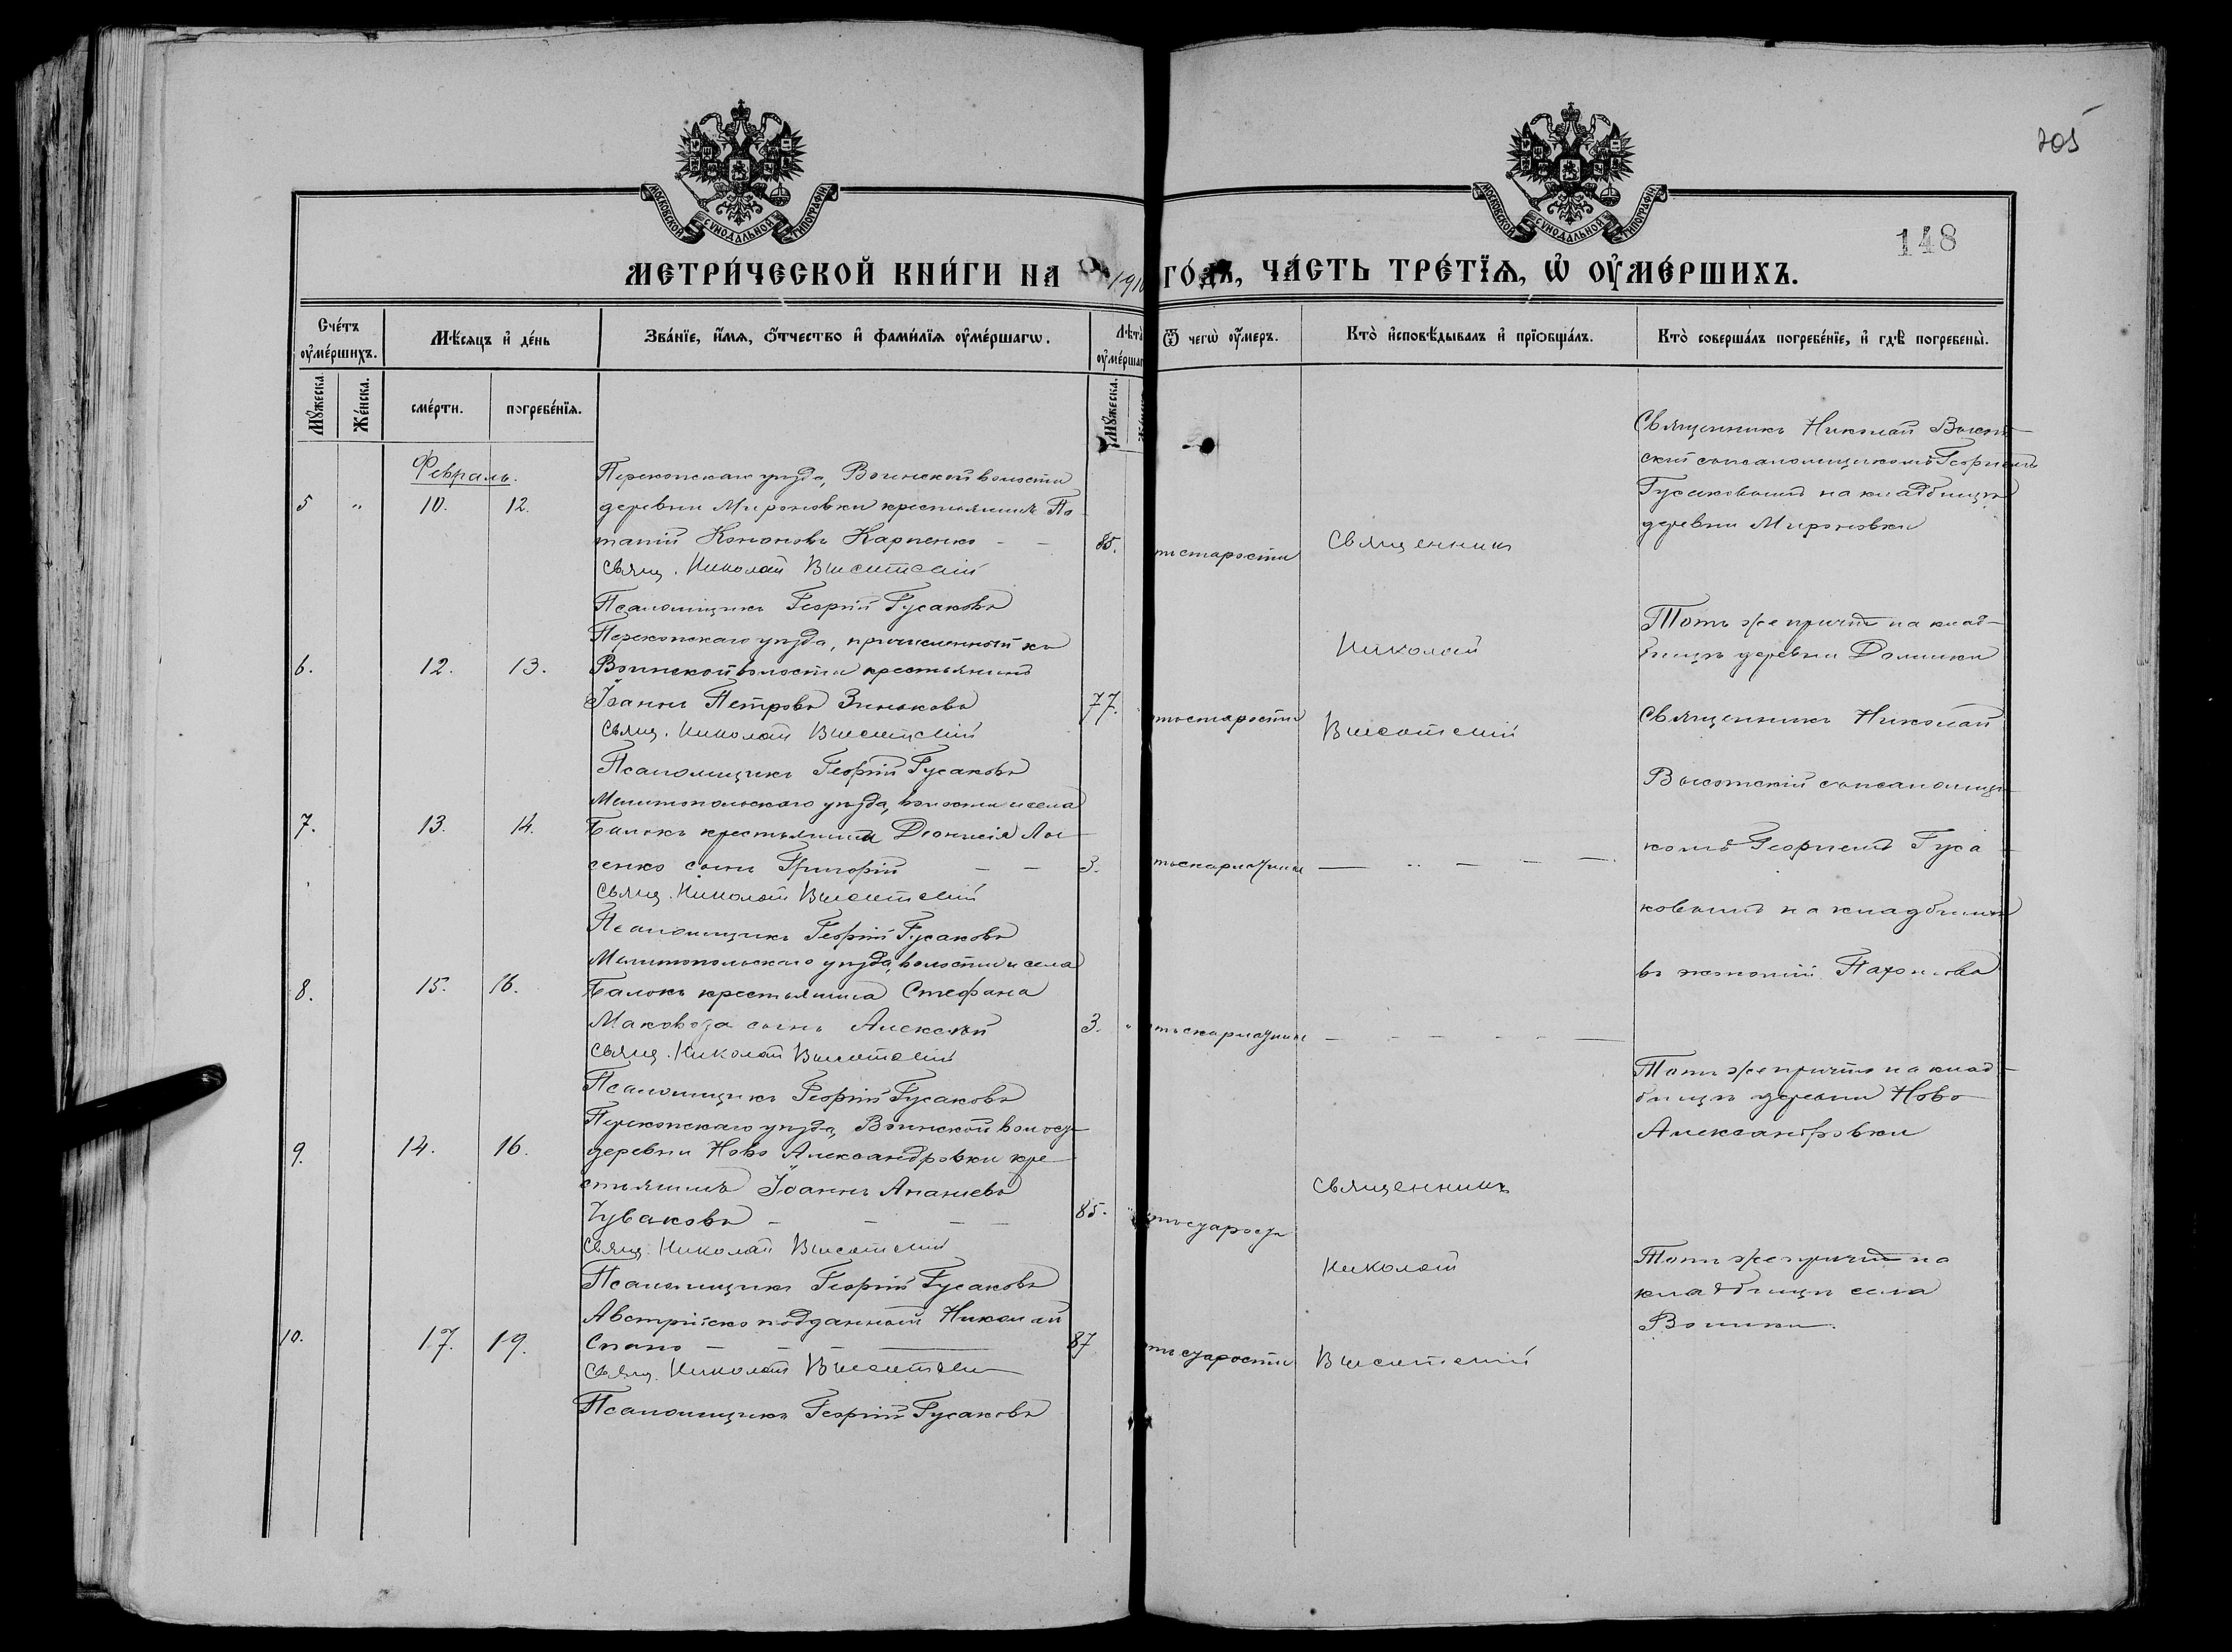 205
148
МОСКОВСКОЙ СѴНОДАЛЬНОЙ ТИПОГРАФІИ
МОСКОВСКОЙ СѴНОДАЛЬНОЙ ТИПОГРАФІИ
МЕТРИ́ЧЕСКОЙ КНИ́ГИ НА 1910 ГО́ДЪ, ЧА́СТЬ ТРЕ́ТЇѦ, Ѡ҆ ОУ҆МЕ́РШИХЪ.
Сче́тъ оу҆ме́ршихъ.
Мѣ́сяцъ и҆ де́нь
Зва́нїе, и҆́мя, ѻ҆́тчество и҆ фами́лїя оу҆ме́ршагѡ.
Лѣта̀ оу҆ме́ршаг
Ѿ чегѡ̀ оу҆́меръ.
Кто̀ и҆сповѣ́дывалъ и҆ прїѡбща́лъ.
Кто̀ соверша́лъ погребе́нїе, и҆ гдѣ̀ погребены̀.
Мꙋ́жеска.
Же́нска.
сме́рти.
погребе́нїя.
Мꙋ́жеска.
Февраль.
5 " 10. 12.
Перекопскаго уѣзда, Воинской волости
деревни Мироновки крестьянинъ По-
тапій Кононовъ Карпенко - - 85.
Свящ. Николай Высотскій
Псаломщикъ Георгій Гусаковъ
отъ старости
Священникъ
Николай
Высотскій
Священникъ Николай Высот-
скій съ псаломщикомъ Георгіемъ
Гусаковымъ на кладбищѣ
деревни Мироновки
6. 12. 13.
Перекопскаго уѣзда, причисленный къ
Воинской волости крестьянинъ
Іоаннъ Петровъ Зиньковъ 77.
Свящ. Николай Высотскій
Псаломщикъ Георгій Гусаковъ
отъ старости
Тотъ же причтъ на клад-
бищѣ деревни
7. 13. 14.
Мелитопольскаго уѣзда, волости и села
Балокъ крестьянина Діонисія Лы-
сенко сынъ Григорій - - 3.
Свящ. Николай Высотскій
Псаломщикъ Георгій Гусаковъ
отъ скарлатины
Священникъ Николай
Высотскій съ псаломщи-
комъ Георгіемъ Гуса-
ковымъ на кладбищѣ
въ экономій
8. 15. 16.
Мелитопольскаго уѣзда, волости и села
Балокъ крестьянина Стефана
Маковоза сынъ Алексѣй 3. "
Свящ. Николай Высотскій
Псаломщикъ Георгій Гусаковъ
отъ скарлатины
9. 14. 16.
Перекопскаго уѣзда, Воинской волости
деревни Ново Александровки кре-
стьянинъ Іоаннъ Ананьевъ
Чуваковъ - - - - 85. "
Свящ. Николай Высотскій
Псаломщикъ Георгій Гусаковъ
отъ старости
Священникъ
Николай
Высотскій
Тотъ же причтъ на клад-
бищѣ деревни Ново
Александровки
10. 17. 19.
Австрійско подданный Николай
Спано - - - 87
Свящ. Николай Высотскій
Псаломщикъ Георгій Гусаковъ
отъ старости
Тотъ же причтъ на
кладбищѣ села
Воинки.